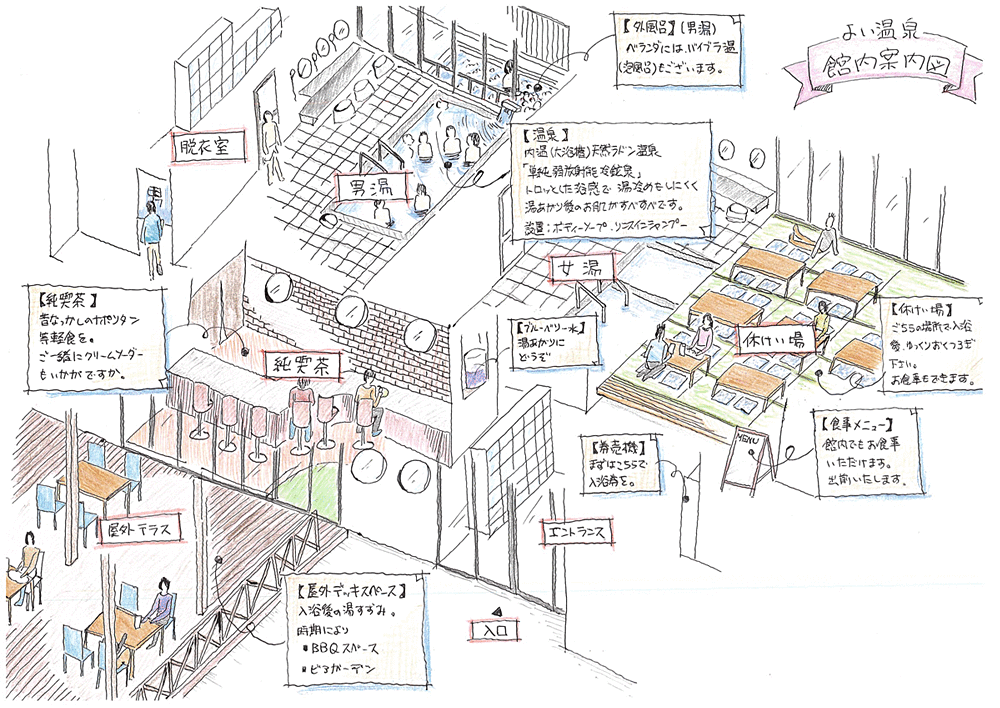 よい温泉
館内案内図
【外風呂】(男湯)
ベランダには、バイブラ温
(泡風呂)もございます。
脱衣室
男
男湯
【温泉】
内湯(大浴槽)天然ラドン温泉
「単純弱放射能冷鉱泉」
トロッとした浴感で湯冷めもしにくく
湯あがり後のお肌がすべすべです。
設置:ボディーソープ.リンスインシャンプー
女湯
【純喫茶】
昔なつかしのナポリタン
等軽食を。
ご一緒にクリームソーダー
もいかがですか。
純喫茶
【ブルーベリー水】
湯あがりに
どうぞ
休けい場
【休けい場】
こちらの場所で入浴
後、ゆっくりおくつろぎ
下さい。
お食事もできます。
【食事メニュー】
館内でもお食事
いただけます。
出前いたします。
MENU
【券売機】
まずはこちらで
入浴券を。
屋外テラス
エントランス
【屋外デッキスペース】
入浴後の湯すずみ。
時期により
■BBQスペース
■ビアガーデン
▲
入口